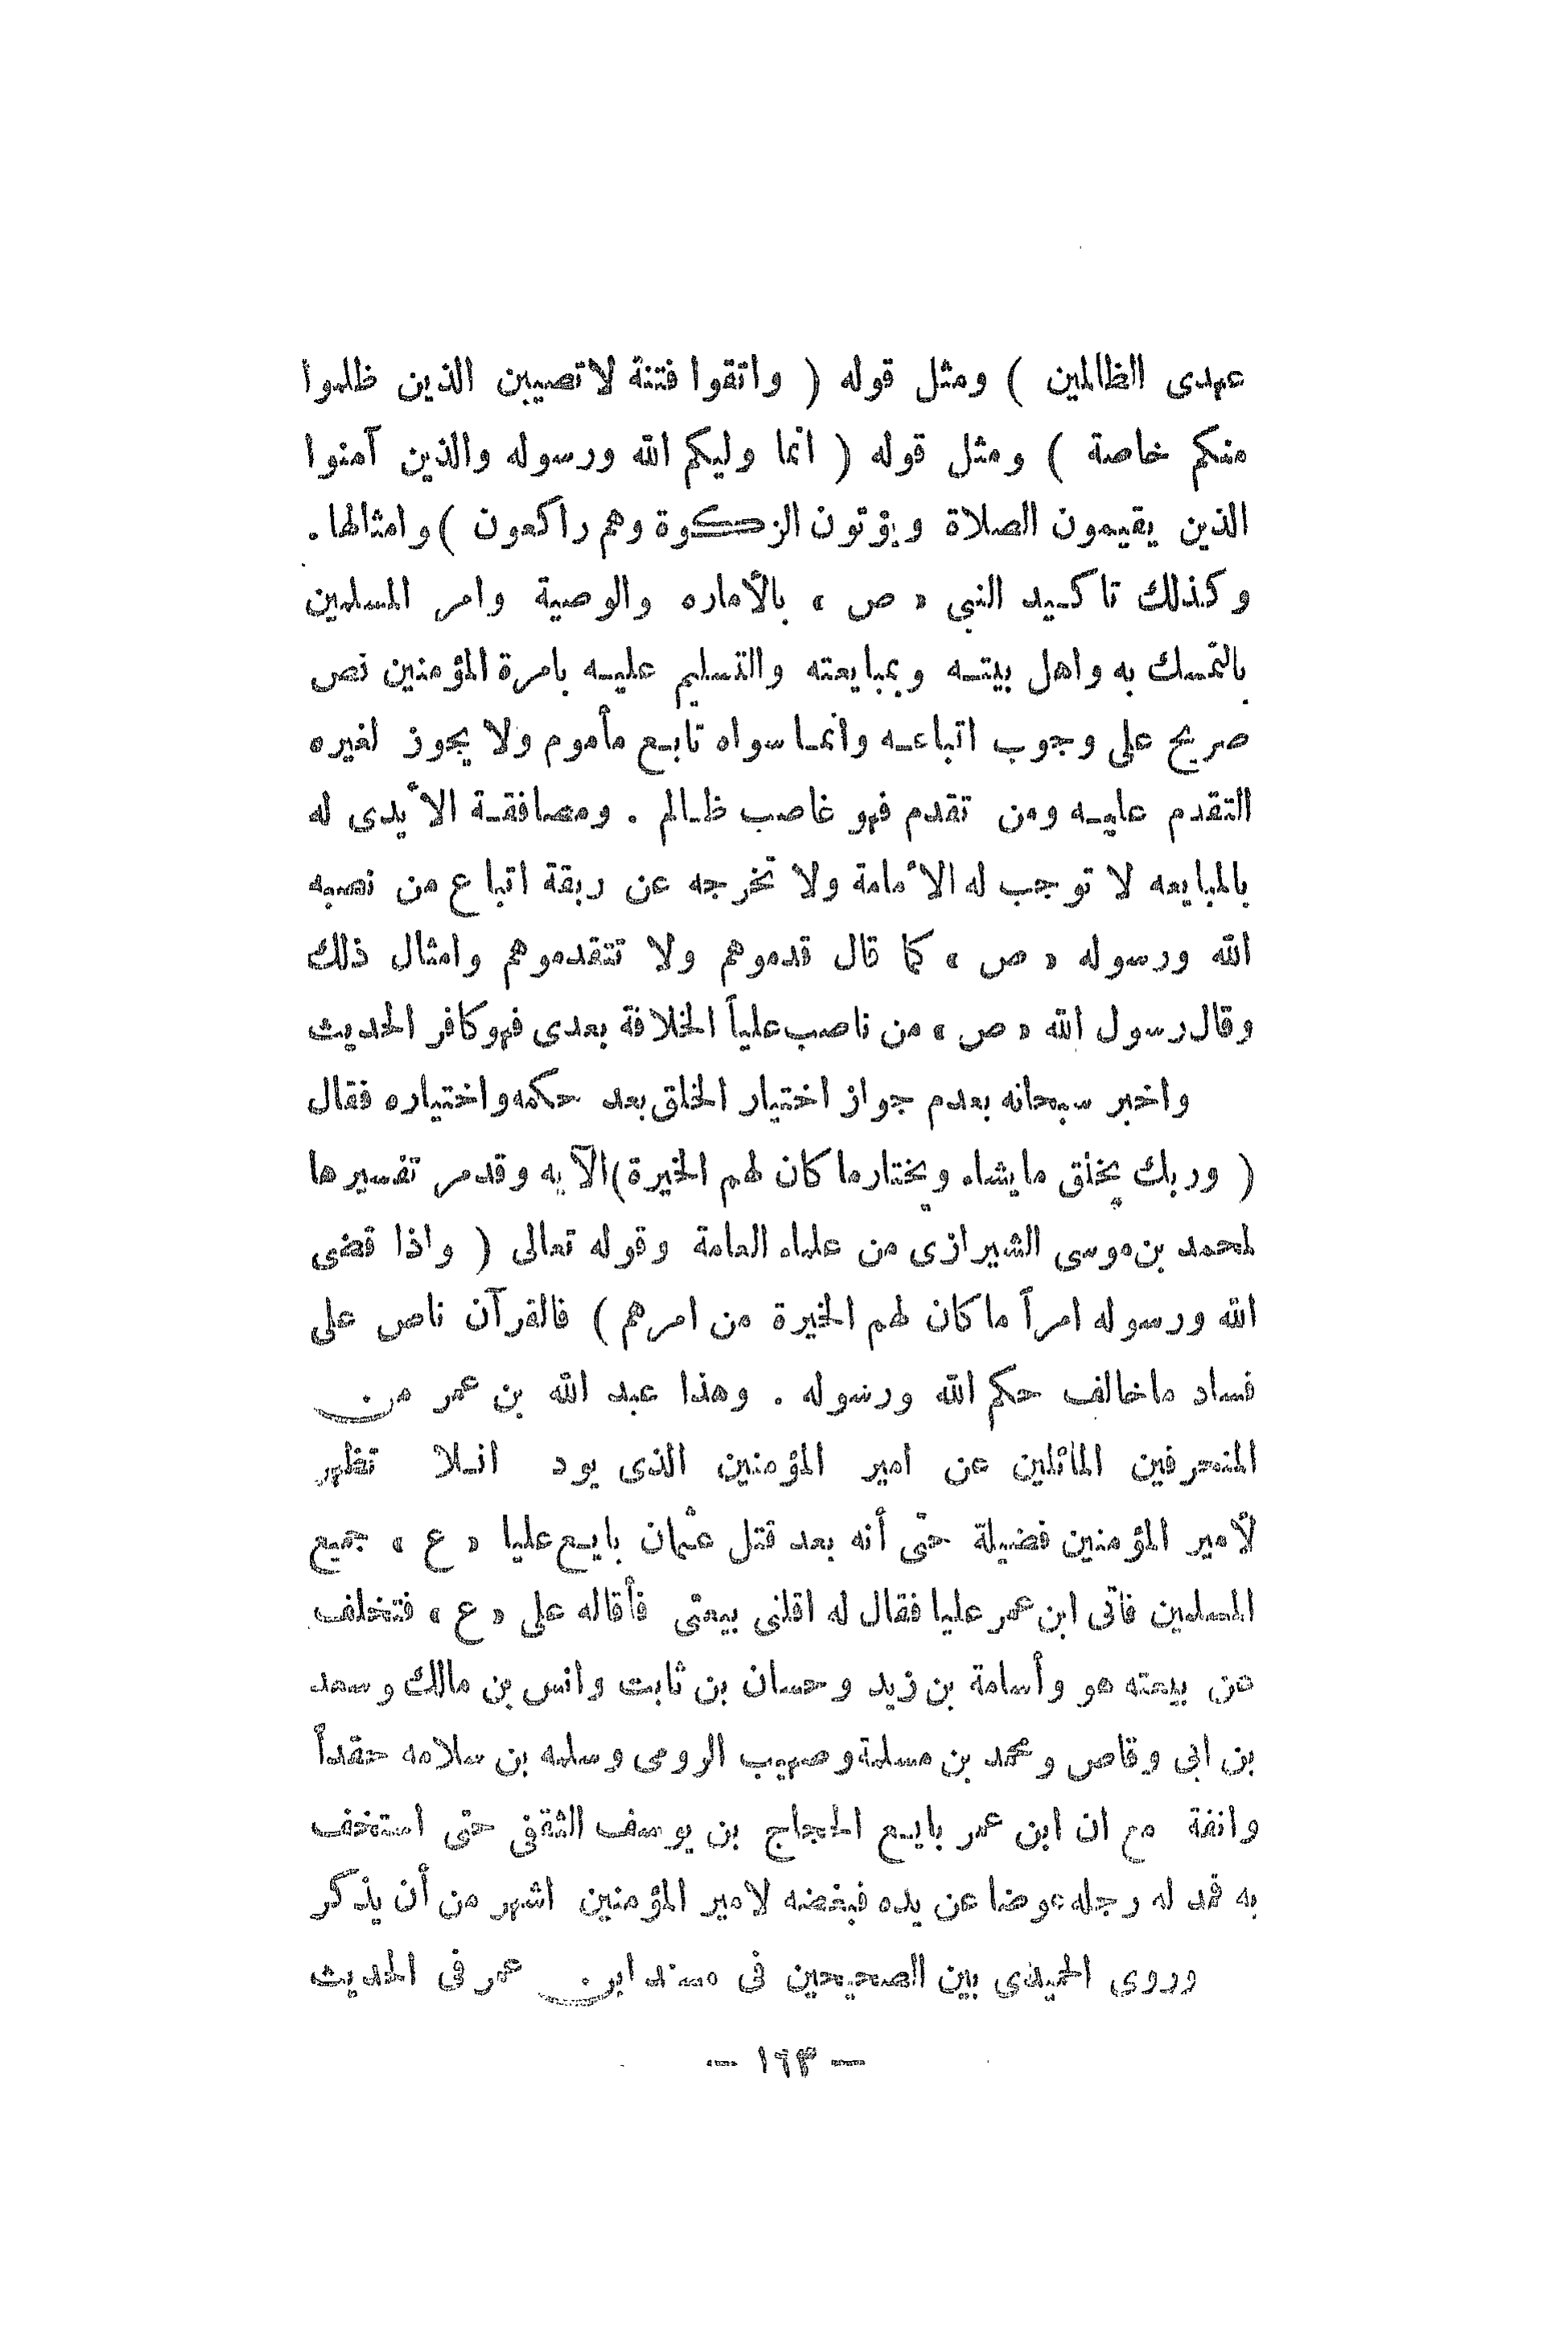 عهدى الظالمين ) ومثل قوله ( واتقوا فتنة لاتصيبن الذين ظلموا
منكم خاصة ) ومثل قوله ( انما وليكم الله ورسوله والذين آمنوا
الذين يقيمون الصلاة ويؤتون الزكوة وهم راكعون ) وامثالها .
وكذلك تاكيد النبي « ص » بالأماره والوصية وامر المسلمين
بالتمسك به واهل بيته وبمبايعته والتسليم عليه بامرة المؤمنين نص
صريح على وجوب اتباعه وانما سواه تابع مأموم ولا يجوز لغيره
التقدم عليه ومن تقدم فهو غاصب ظالم . ومصافقة الأيدى له
بالمبايعه لا توجب له الأمامة ولا تخرجه عن ربقة اتباع من نصبه
الله ورسوله « ص » كما قال قدموهم ولا تتقدموهم وامثال ذلك
وقال رسول الله « ص » من ناصب علياً الخلافة بعدى فهو كافر الحديث
واخبر سبحانه بعدم جواز اختيار الخلق بعد حكمه واختياره فقال
( وربك يخلق مايشاء ويختار ما كان لهم الخيرة ) الآيه وقدمر تفسيرها
لمحمد بن موسى الشيرازى من علماء العامة وقوله تعالى ( واذا قضى
الله ورسوله امراً ما كان لهم الخيرة من امرهم ) فالقرآن ناص على
فساد ماخالف حكم الله ورسوله . وهذا عبد الله بن عمر من
المنحرفين المائلين عن امير المؤمنين الذى يود انلا تظهر
لأمير المؤمنين فضيلة حتى أنه بعد قتل عثمان بايع عليا « ع » جميع
المسلمين فاتى ابن عمر عليا فقال له اقلنى بيعتى فأقاله على « ع » فتخلف
عن بيعته هو وأسامة بن زيد وحسان بن ثابت وانس بن مالك وسعد
بن ابى وقاص ومحمد بن مسلمة وصهيب الرومى وسلمه بن سلامه حقداً
وانفة مع ان ابن عمر بايع الحجاج بن يوسف الثقفى حتى استخف
به فمد له رجله عوضا عن يده فبغضه لامير المؤمنين اشهر من أن يذكر
وروى الحميدى بين الصحيحين فى مسند ابن عمر فى الحديث
— ١٦٣ —